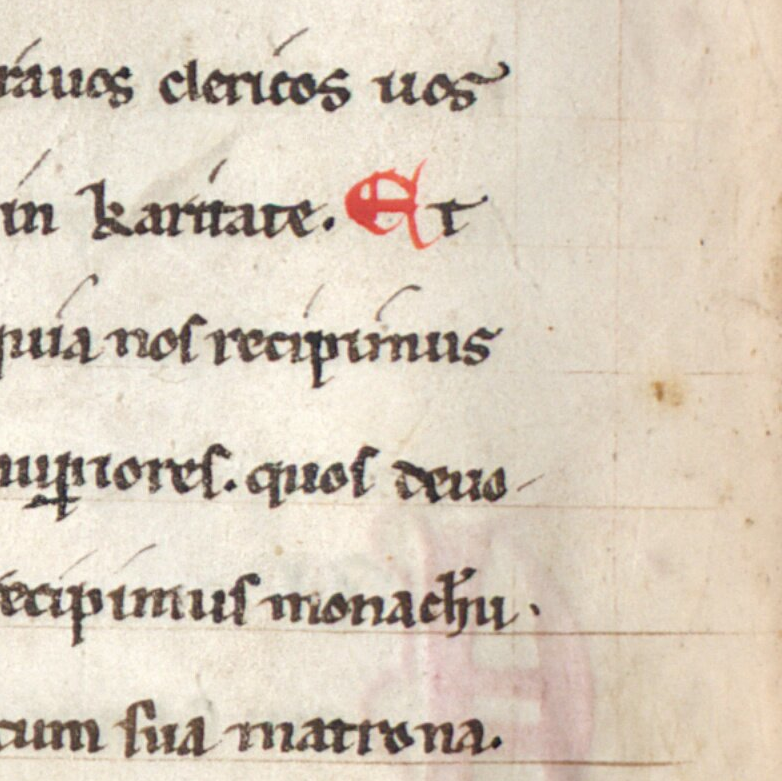 clericos uos
in karitate. Et
quia nos recipimus
quos deuo
recipimus monachu.
cum sua matrona.